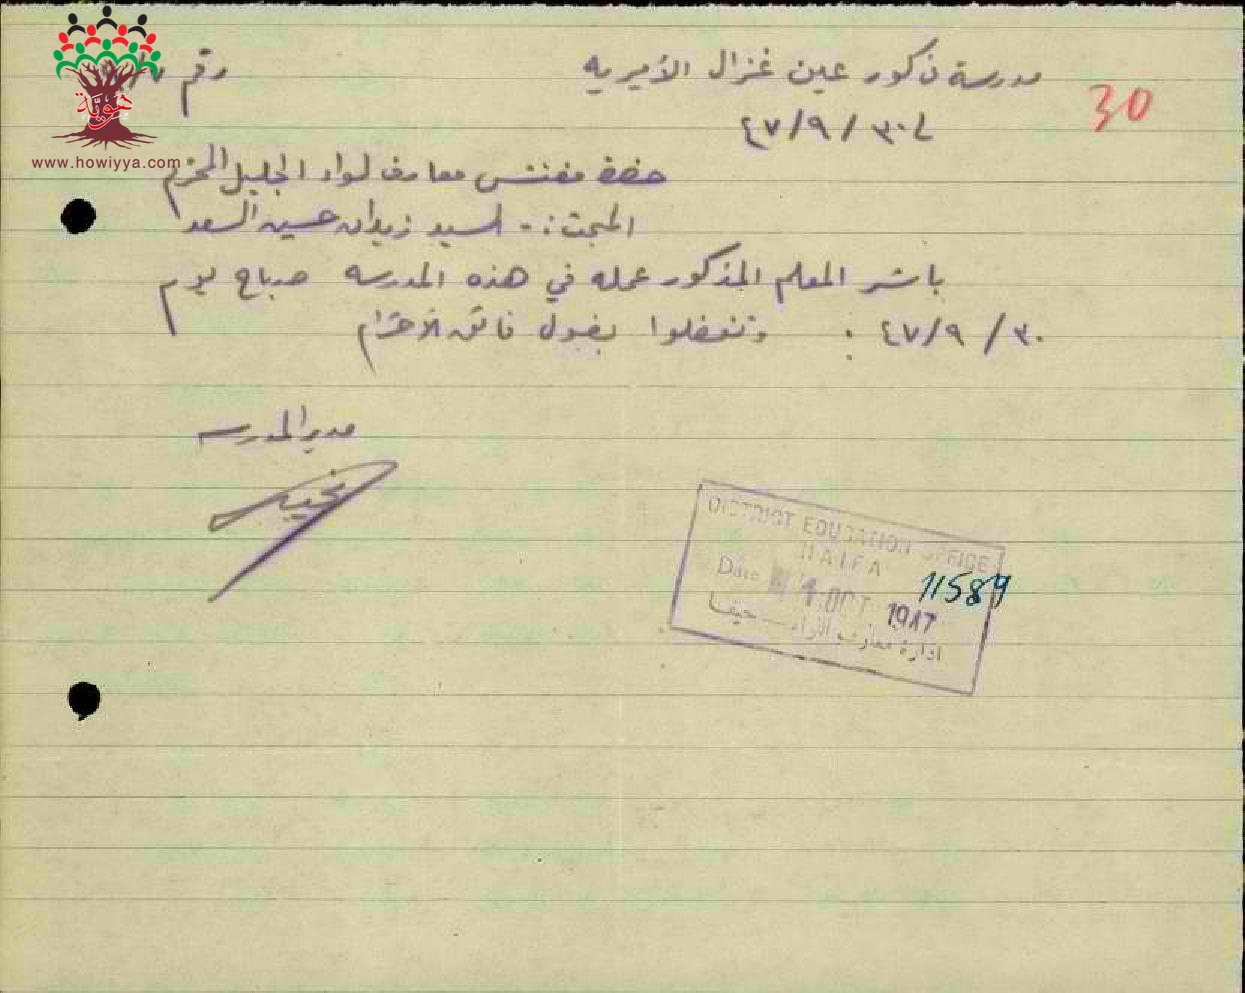 مدرسة ذكور عين غزال الأميريه
رقم
30
في ٣٠/ ٩/ ٤٧
حضرة مفتش معارف لواء الجليل المحترم
المبحث :- السيد زيدان حسين السعد
باشر المعلم المذكور عمله في هذه المدرسه صباح يوم
٣٠/ ٩/ ٤٧ . وتفضلوا بقبول فائق الاحترام
مدير المدرسه
هويّة
www.howiyya.com
DISTRICT EDUCATION OFFICE
HAIFA
11589
Date 4 OCT 1947
ادارة معارف اللواء — حيفا